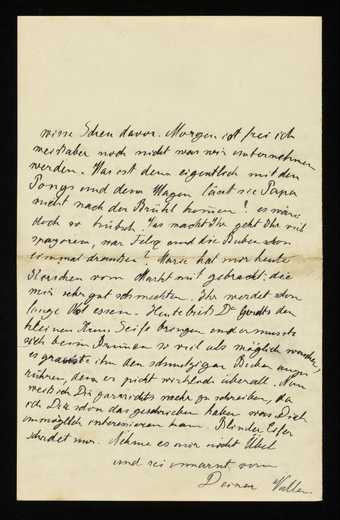 eine Scheu davor. Morgen ist frei ich
weiss aber noch nicht was wir unternehmen
werden. Was ist denn eigentlich mit den
Ponys und dem Wagen lässt sie Papa
nicht nach der Brühl kommen? es wäre
doch so hübsch. Was macht Ihr geht Ihr viel
spazieren, war Felix und die Buben schon
einmal draußen? Marie hat mir heute
vom Markt mit gebracht, die
mir sehr gut schmeckten. Ihr werdet schon
lange Obst essen. Heute ließ Dr. den
kleinen Seife bringen und er musste
sich beim Brunnen so viel als möglich waschen,
es grauste ihn den schmutzigen Buben anzu
rühren, denn er riecht wirklich überall. Nun
weiss ich Dir garnichts mehr zu schreiben, da
ich Dir schon das geschrieben habe was Dich
unmöglich interessieren kann. Blinder Eifer
schadet nur. Nehme es mir nicht Übel
und sei umarmt von
Deiner